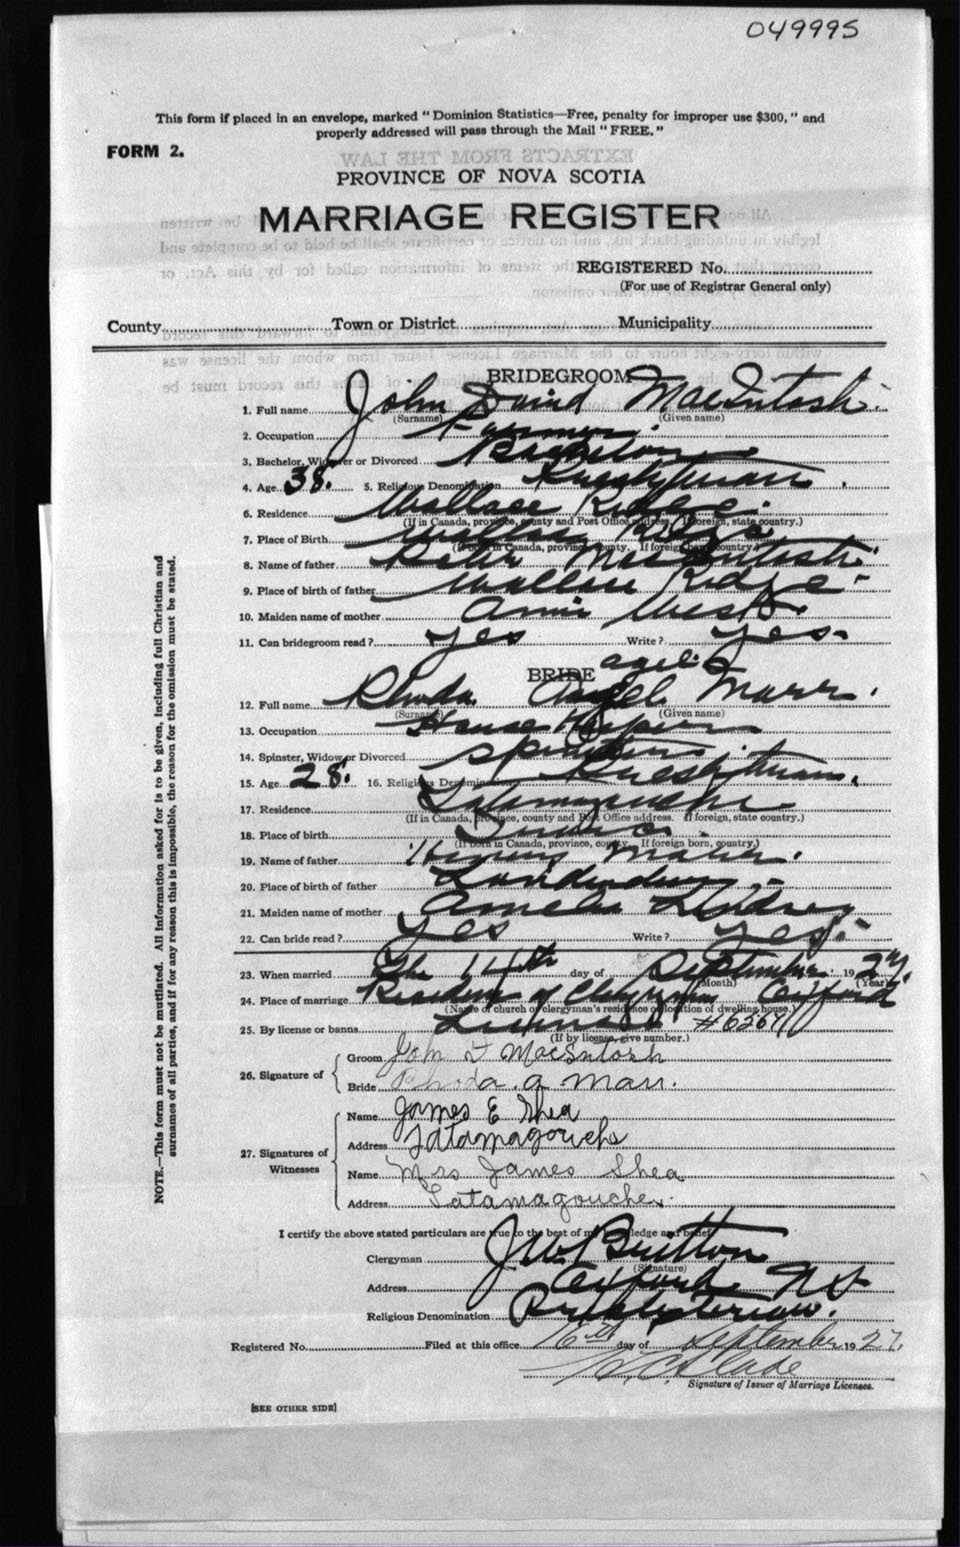 049995
This form if placed in an envelope, marked " Dominion Statistics—Free, penalty for improper use $300, " and
properly addressed will pass through the Mail " FREE. "
FORM 2.
EXTRACTS FROM THE LAW
PROVINCE OF NOVA SCOTIA
MARRIAGE REGISTER
REGISTERED No.
(For use of Registrar General only)
County Town or District Municipality
BRIDEGROOM
1. Full name John David MacIntosh.
(Surname) (Given name)
2. Occupation Farmer.
3. Bachelor, Widower or Divorced Bachelor.
4. Age 38. 5. Religious Denomination Presbyterian.
6. Residence Wallace Ridge.
(If in Canada, province, county and Post Office address. If foreign, state country.)
7. Place of Birth Wallace Ridge.
(If born in Canada, province, county. If foreign born, country.)
8. Name of father Peter MacIntosh.
9. Place of birth of father Wallace Ridge-
10. Maiden name of mother Annie
11. Can bridegroom read? Yes Write? Yes-
BRIDE
12. Full name Rhoda Angel Marr.
(Surname) (Given name)
13. Occupation House Keeper
14. Spinster, Widow or Divorced Spinster.
15. Age 28. 16. Religious Denomination Presbyterian.
17. Residence Tatamagouche
(If in Canada, province, county and Post Office address. If foreign, state country.)
18. Place of birth
(If born in Canada, province, county. If foreign born, country.)
19. Name of father Marr.
20. Place of birth of father Londonderry-
21. Maiden name of mother Amelia Lindsey
22. Can bride read? Yes Write? Yes.-
23. When married the 14th day of September 1927.
(Month) (Year)
24. Place of marriage Residence of Clergyman Oxford
(Name of church or clergyman's residence or location of dwelling house.)
25. By license or banns License #6267
(If by license, give number.)
26. Signature of
Groom John D MacIntosh
Bride Rhoda. A Marr.
27. Signatures of Witnesses
Name James E Shea
Address Tatamagouche
Name Mrs James Shea
Address Tatamagouche.
I certify the above stated particulars are true to the best of my knowledge and belief
Clergyman J W Britton
(Signature)
Address Oxford NS
Religious Denomination Presbyterian.
Registered No. Filed at this office 16th day of September 1927.
Slade
Signature of Issuer of Marriage Licenses.
[SEE OTHER SIDE]
NOTE.—This form must not be mutilated. All information asked for is to be given, including full Christian and
surnames of all parties, and if for any reason this is impossible, the reason for the omission must be stated.